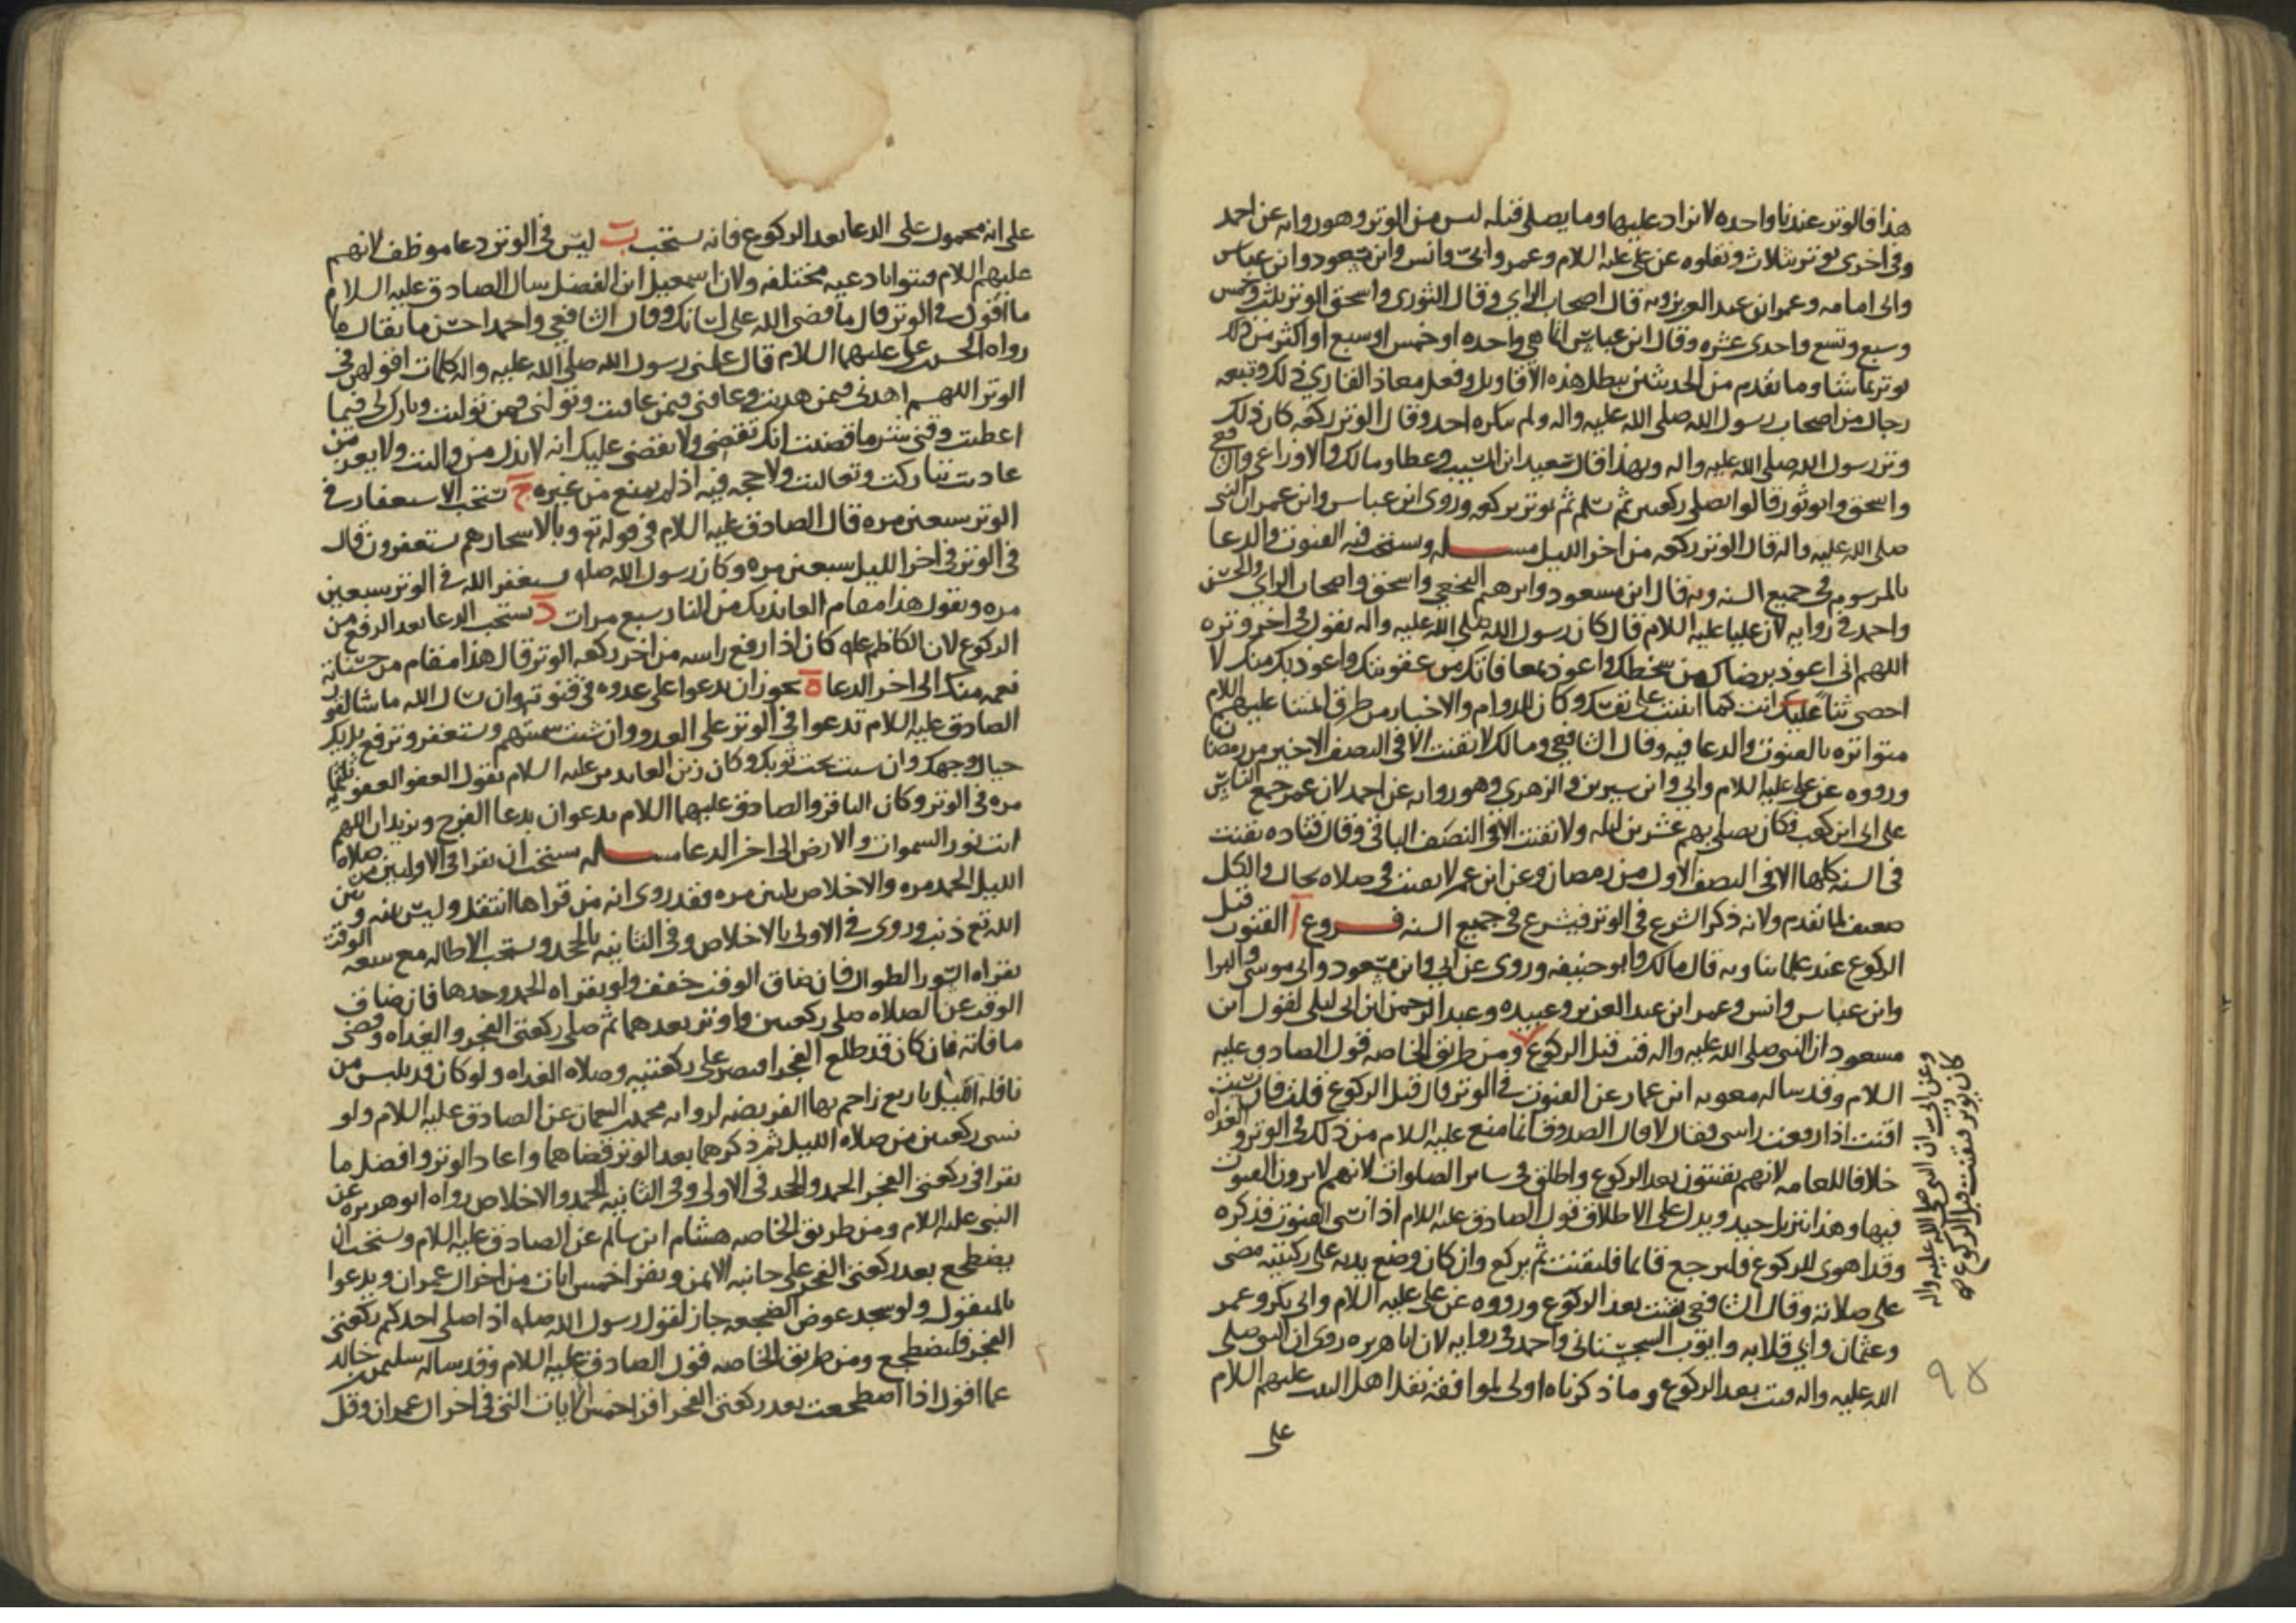 هذا فالوتر عندنا واحده لا يزاد عليها وما يصلى قبله ليس من الوتر وهو روايه عن احمد
وفي اخرى يوتر بثلاث ونقلوه عن علي عليه السلام وعمر وابي وانس وابن مسعود وابن عباس
وابي امامه وعمر ابن عبد العزيز وبه قال اصحاب الراي وقال الثوري واسحق الوتر بثلث وخمس
وسبع وتسع واحدى عشره وقال ابن عباس انما هي واحده او خمس او سبع او اكثر من ذلك
يوتر بما شا وما تقدم من الحديثين يبطل هذه الاقاويل وفعل معاذ القاري ذلك وتبعه
رجال من اصحاب رسول الله صلى الله عليه واله ولم ينكره احد وقال الوتر ركعه كان ذلك
وتر رسول الله صلى الله عليه واله وبهذا قال سعيد ابن المسيب وعطا ومالك والاوزاعي والشافعي
واسحق وابو ثور قالوا يصلي ركعتين ثم يسلم ثم يوتر بركعه وروى ابن عباس وابن عمر ان النبي
صلى الله عليه واله قال الوتر ركعه من اخر الليل مسله ويستحب فيه القنوت والدعا
بالمرسوم في جميع السنه وبه قال ابن مسعود وابرهيم النخعي واسحق واصحاب الراي والحسن
واحمد في روايه لان عليا عليه السلام قال كان رسول الله صلى الله عليه واله يقول في اخر وتره
اللهم اني اعوذ برضاك من سخطك واعوذ بمعافاتك من عقوبتك واعوذ بك منك لا
احصي ثنا عليك انت كما اثنيت على نفسك وكان للدوام والاخبار من طرق المتنا عليهم السلام
متواتره بالقنوت والدعا فيه وقال الشافعي ومالك لا يقنت الا في النصف الاخير من رمضان
ورووه عن علي عليه السلام وابي وابن سيرين والزهري وهو روايه عن احمد لان عمر جمع الناس
على ابي ابن كعب فكان يصلي بهم عشرين ليله ولا يقنت الا في النصف الباقي وقال قتاده يقنت
في السنه كلها الا في النصف الاول من رمضان وعن ابن عمر لا يقنت في صلاه بحال والكل
ضعيف لما تقدم ولانه ذكر الشرع في الوتر فيشرع في جميع السنه فروع ا القنوت قبل
الركوع عند علمائنا وبه قال مالك وابو حنيفه وروى عن ابي وابن مسعود وابي موسى والبرا
وابن عباس وانس وعمر ابن عبد العزيز وعبيده وعبد الرحمن ابن ابي ليلى لقول ابن
مسعود ان النبي صلى الله عليه واله قنت قبل الركوع ومن طريق الخاصه قول الصادق عليه
السلام وقد ساله معويه ابن عمار عن القنوت في الوتر قال قبل الركوع قلت فان نسيت
اقنت اذا رفعت راسي فقال لا قال الصدوق انما منع عليه السلام من ذلك في الوتر والغداه
خلافا للعامه لانهم يقنتون بعد الركوع واطلق في ساير الصلوات لانهم لا يرون القنوت
فيها وهذا تنزيل جيد ويدل على الاطلاق قول الصادق عليه السلام اذا نسي القنوت فذكره
وقد اهوى للركوع فليرجع قائما فليقنت ثم يركع وان كان وضع يديه على ركبتيه مضى
على صلاته وقال الشافعي يقنت بعد الركوع ورووه عن علي عليه السلام وابي بكر وعمر
وعثمان وابي قلابه وايوب السجستاني واحمد في روايه لان ابا هريره روى ان النبي صلى
الله عليه واله قنت بعد الركوع وما ذكرناه اولى لموافقه نقل اهل البيت عليهم السلام
على
وعن ابي ان النبي صلى الله عليه واله
كان يوتر فيقنت قبل الركوع صح
٩٥
على انه محمول على الدعا بعد الركوع فانه يستحب ب ليس في الوتر دعا موظف لانهم
عليهم السلام قنتوا بادعيه مختلفه ولان اسمعيل ابن الفضل سال الصادق عليه السلام
ما اقول في الوتر قال ما قضى الله على لسانك وقال الشافعي واحمد احسن ما يقال ما
رواه الحسن بن علي عليهما السلام قال علمني رسول الله صلى الله عليه واله كلمات اقولهن في
الوتر اللهم اهدني فيمن هديت وعافني فيمن عافيت وتولني فيمن توليت وبارك لي فيما
اعطيت وقني شر ما قضيت انك تقضي ولا يقضى عليك انه لا يذل من واليت ولا يعز من
عاديت تباركت وتعاليت ولا حجه فيه اذ لم يمنع من غيره ج يستحب الاستغفار في
الوتر سبعين مره قال الصادق عليه السلام في قوله تع وبالاسحار هم يستغفرون قال
في الوتر في اخر الليل سبعين مره وكان رسول الله صله يستغفر الله في الوتر سبعين
مره ويقول هذا مقام العائذ بك من النار سبع مرات د يستحب الدعا بعد الرفع من
الركوع لان الكاظم عله كان اذا رفع راسه من اخر ركعه الوتر قال هذا مقام من حسناته
نعمه منك الى اخر الدعا ه يجوز ان يدعوا على عدوه في قنوته وان يسال الله ما شا لقول
الصادق عليه السلام تدعوا في الوتر على العدو وان شئت سميتهم وتستغفر وترفع يديك
حيال وجهك وان شئت تحت ثوبك وكان زين العابدين عليه السلام يقول العفو العفو ثلثمايه
مره في الوتر وكان الباقر والصادق عليهما السلام يدعوان بدعا الفرج ويزيدان اللهم
انت نور السموات والارض الى اخر الدعا مسله يستحب ان يقرا في الاوليين من صلاه
الليل الحمد مره والاخلاص ثلثين مره فقد روى انه من قراها انتقل وليس بينه وبين
الله تع ذنب وروى في الاولى بالاخلاص وفي الثانيه بالجحد ويستحب الاطاله مع سعه الوقت
بقراه السور الطوال فان ضاق الوقت خفف ولو بقراه الحمد وحدها فان ضاق
الوقت عن الصلاه صلى ركعتين واوتر بعدهما ثم صلى ركعتي الفجر والغداه وقضى
ما فاته فان كان قد طلع الفجر اقتصر على ركعتيه وصلاه الغداه ولو كان قد تلبس من
نافله الليل باربع زاحم بها الفريضه لروايه محمد بن النعمان عن الصادق عليه السلام ولو
نسى ركعتين من صلاه الليل ثم ذكرهما بعد الوتر قضاهما واعاد الوتر وافضل ما
يقرا في ركعتي الفجر الحمد والجحد في الاولى وفي الثانيه الحمد والاخلاص رواه ابو هريره عن
النبي عليه السلام ومن طريق الخاصه هشام ابن سالم عن الصادق عليه السلام ويستحب ان
يضطجع بعد ركعتي الفجر على جانبه الايمن ويقرا خمس ايات من اخر ال عمران ويدعوا
بالمنقول ولو سجد عوض الضجعه جاز لقول رسول الله صله اذا صلى احدكم ركعتي
الفجر فليضطجع ومن طريق الخاصه قول الصادق عليه السلام وقد ساله سليمن بن خالد
عما اقول اذا اضطجعت بعد ركعتي الفجر اقرا خمس ايات التي في اخر ال عمران وقل